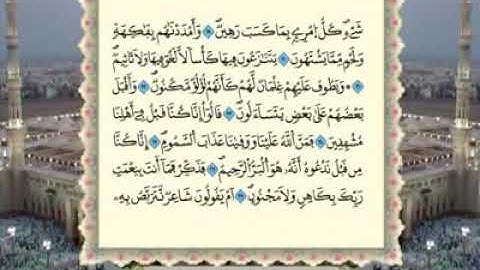 شَيْءٍ كُلُّ امْرِئٍ بِمَا كَسَبَ رَهِينٌ ۝ وَأَمْدَدْنَاهُم بِفَاكِهَةٍ
وَلَحْمٍ مِّمَّا يَشْتَهُونَ ۝ يَتَنَازَعُونَ فِيهَا كَأْسًا لَّا لَغْوٌ فِيهَا وَلَا تَأْثِيمٌ
۝ وَيَطُوفُ عَلَيْهِمْ غِلْمَانٌ لَّهُمْ كَأَنَّهُمْ لُؤْلُؤٌ مَّكْنُونٌ ۝ وَأَقْبَلَ
بَعْضُهُمْ عَلَىٰ بَعْضٍ يَتَسَاءَلُونَ ۝ قَالُوا إِنَّا كُنَّا قَبْلُ فِي أَهْلِنَا
مُشْفِقِينَ ۝ فَمَنَّ اللَّهُ عَلَيْنَا وَوَقَانَا عَذَابَ السَّمُومِ ۝ إِنَّا كُنَّا
مِن قَبْلُ نَدْعُوهُ أَنَّهُ هُوَ الْبَرُّ الرَّحِيمُ ۝ فَذَكِّرْ فَمَا أَنتَ بِنِعْمَتِ
رَبِّكَ بِكَاهِنٍ وَلَا مَجْنُونٍ ۝ أَمْ يَقُولُونَ شَاعِرٌ نَّتَرَبَّصُ بِهِ